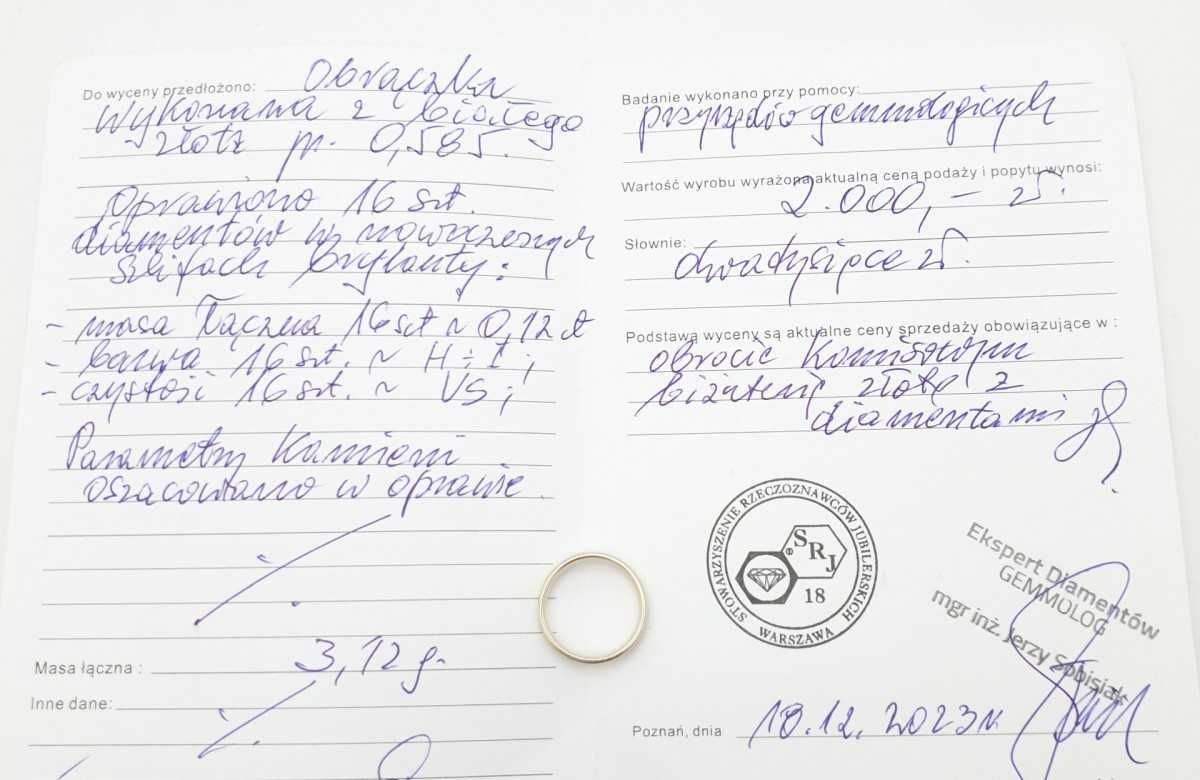 Do wyceny przedłożono: Obrączka
wykonana z białego
złota pr. 0,585.
Oprawiono 16 szt.
diamentów w nowoczesnych
szlifach brylanty:
- masa łączna 16 szt ~ 0,12 ct
- barwa 16 szt. ~ H ÷ I;
- czystość 16 szt. ~ VS;
Parametry kamieni
oszacowano w oprawie.
Masa łączna : 3,12 g.
Inne dane:
Badanie wykonano przy pomocy:
przyrządów gemmologicznych
Wartość wyrobu wyrażona aktualną ceną podaży i popytu wynosi:
2.000,- zł.
Słownie:
dwa tysiące zł.
Podstawą wyceny są aktualne ceny sprzedaży obowiązujące w :
obrocie komisowym
biżuterii złotej z
diamentami
STOWARZYSZENIE RZECZOZNAWCÓW JUBILERSKICH
SRJ
18
WARSZAWA
Ekspert Diamentów
GEMMOLOG
mgr inż. Jerzy Sobisiak
Poznań, dnia 18.12.2023r